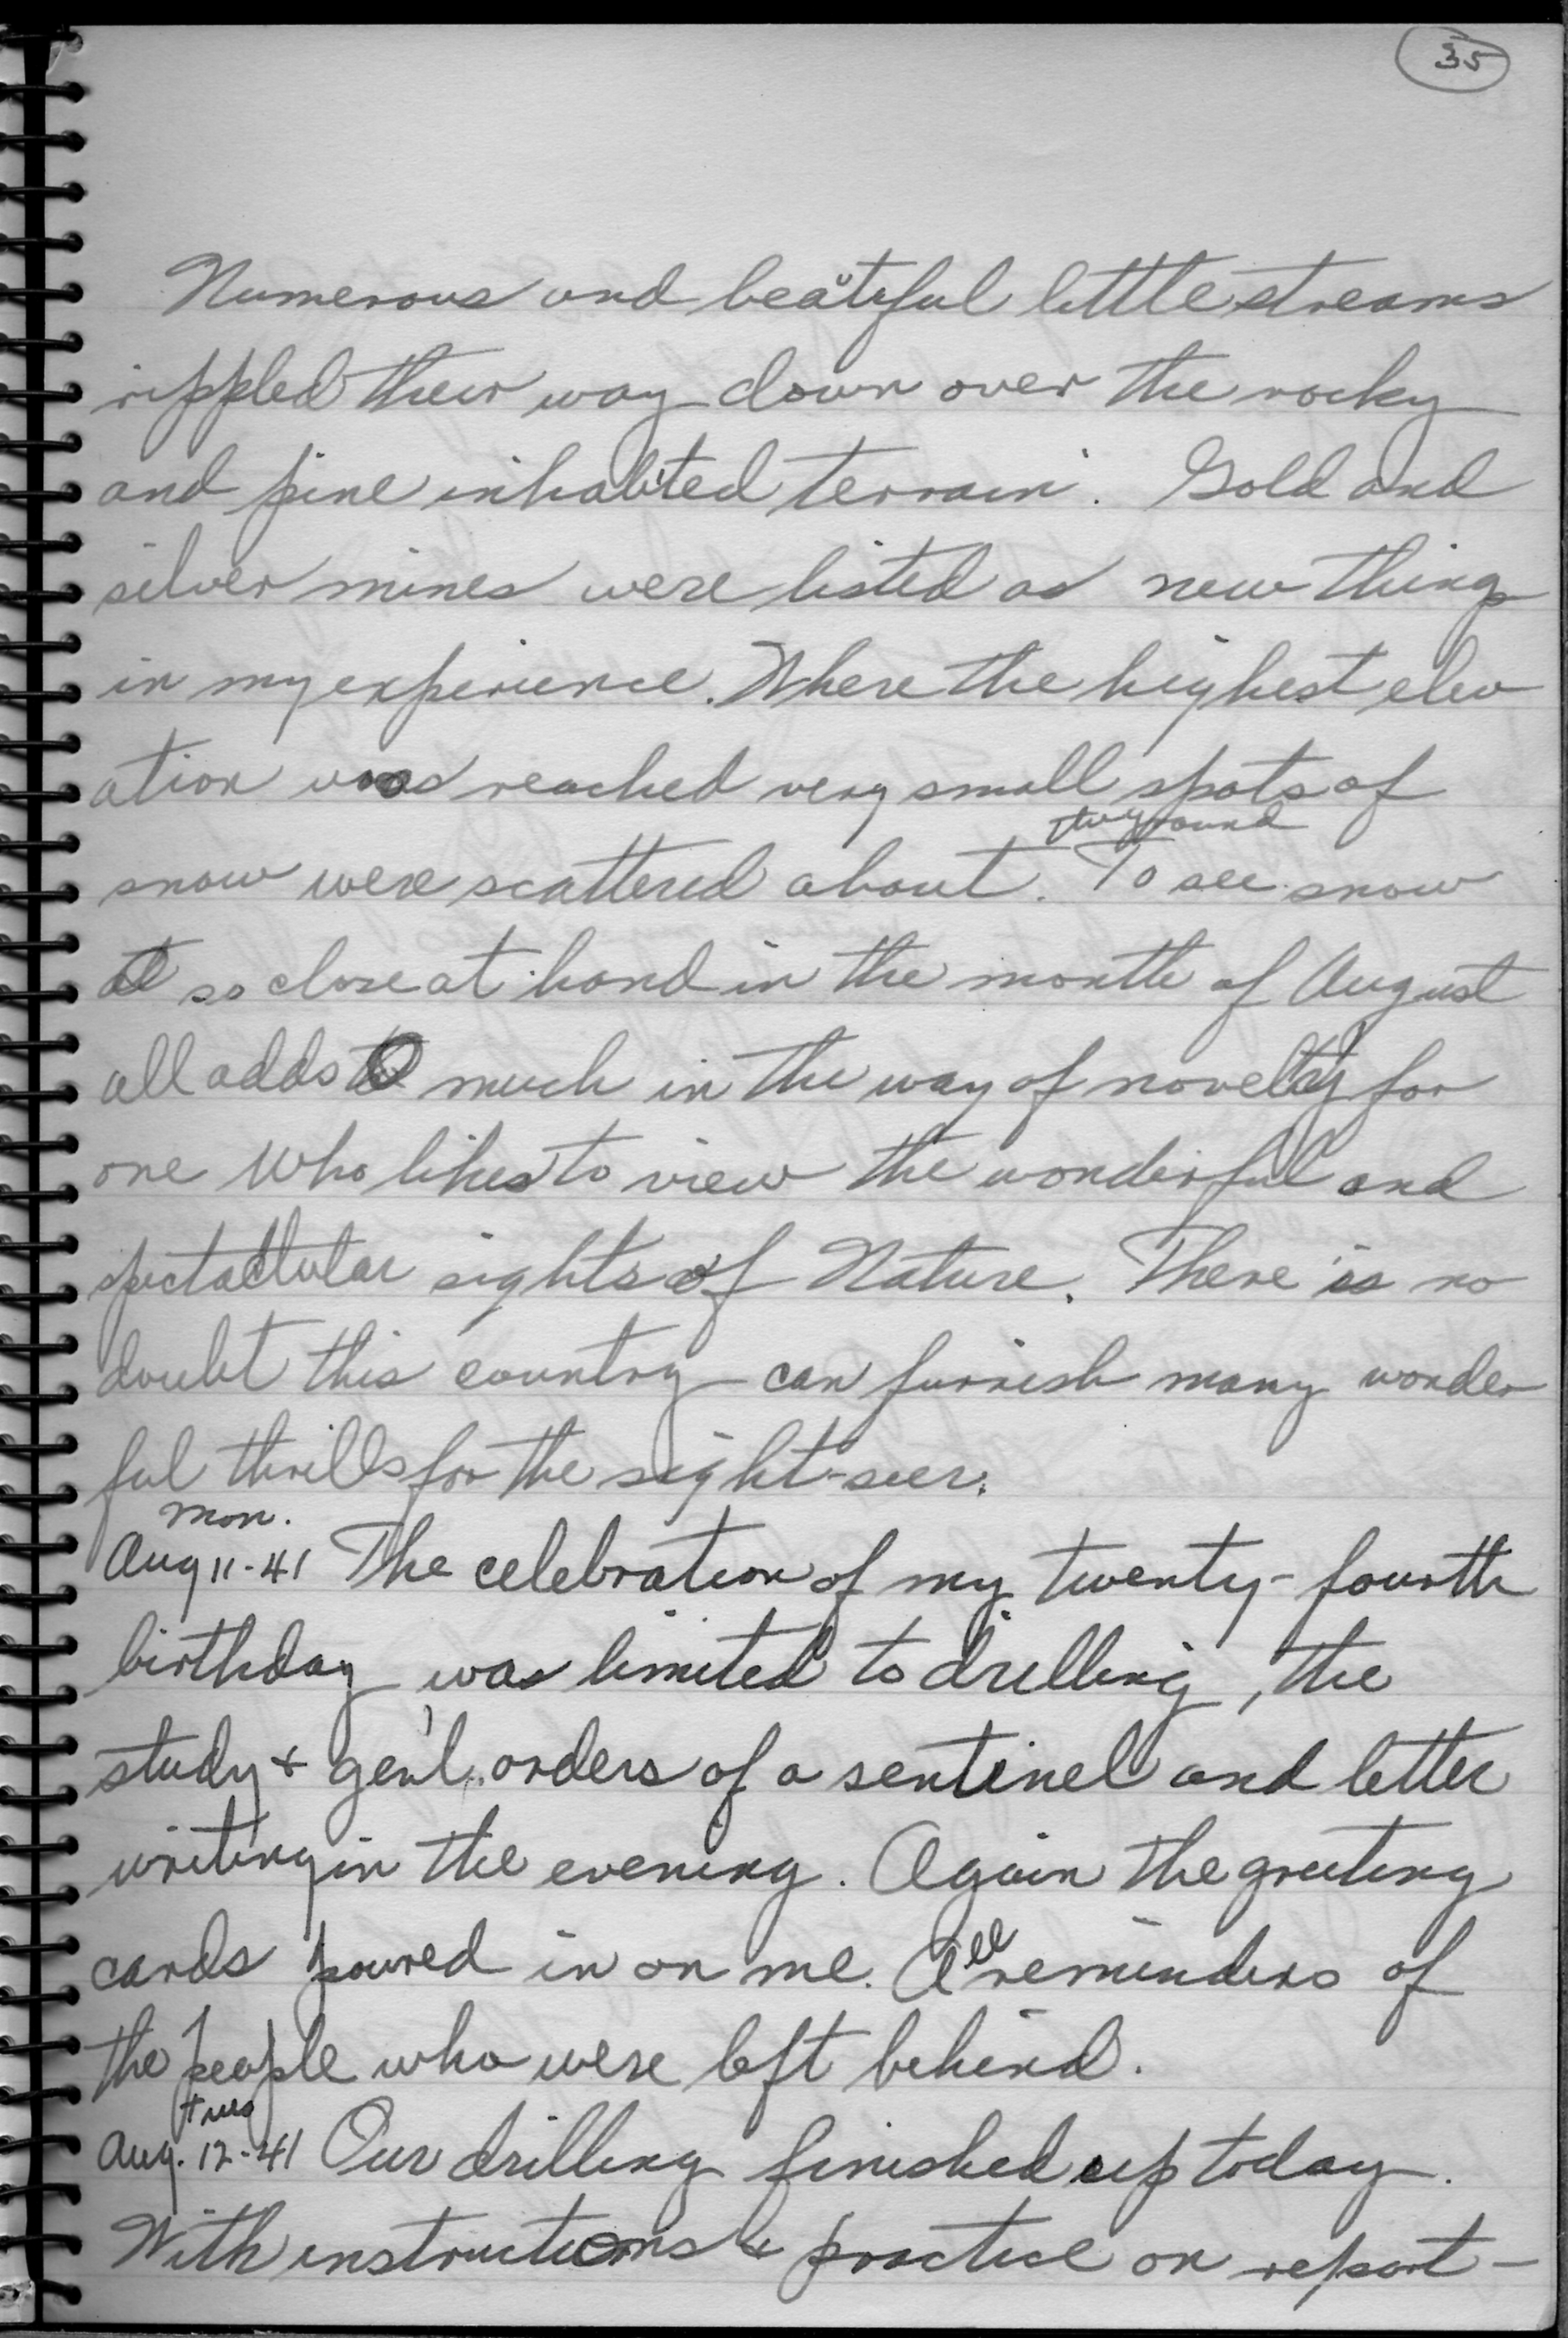 35
Numerous and beautiful little streams
rippled their way down over the rocky
and pine inhabited terrain. Gold and
silver mines were listed as new things
in my experience. Where the highest elev
ation was reached very small spots of
snow were scattered about. To see snow
so close at hand in the month of August
all adds to much in the way of novelty for
one who likes to view the wonderful and
spectactular sights of Nature. There is no
doubt this country can furnish many wonder
ful thrills for the sight-seer.
Mon.
Aug 11-41 The celebration of my twenty-fourth
birthday, was limited to drilling, the
study + gen'l. orders of a sentinel and letter
writing in the evening. Again the greeting
cards poured in on me. All reminders of
the people who were left behind.
Tues
Aug. 12-41 Our drilling finished up today.
With instructions & practice on report-